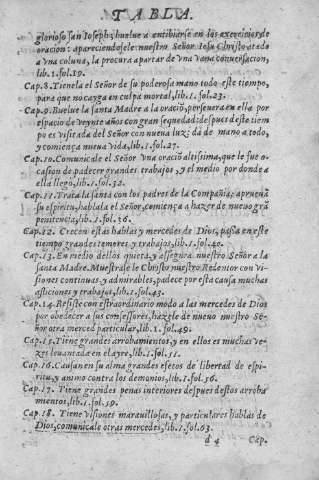 TABLA.
glorioso san Ioseph; buelue a entibiarse en los exercicios de
oracion: apareciendosele nuestro Señor Iesu Christo atado
a vna coluna, la procura apartar de vna vana conuersacion,
lib.1.fol.19.
Cap.8. Tienela el Señor de su poderosa mano todo este tiempo,
para que no cayga en culpa mortal, lib.1.fol.23.
Cap.9. Buelue la santa Madre a la oració, perseuera en ella por
espacio de veynte años con gran sequedad: despues deste tiem
po es visitada del Señor con nueua luz; dá de mano a todo,
y comiença nueua vida, lib.1.fol.27.
Cap.10. Comunicale el Señor vna oració altissima, que le fue o-
casion de padecer grandes trabajos, y el medio por donde a
ella llegò, lib.1.fol.32.
Cap.11. Trata la santa con los padres de la Compañia; aprueuã
su espiritu, hablala el Señor, comiença a hazer de nueuo grã
penitencia, lib.1.fol.36.
Cap.12. Crecen estas hablas y mercedes de Dios, passa en este
tiempo grandes temores y trabajos, lib.1.fol.40.
Cap.13. En medio dellos quieta, y assegura nuestro Señor a la
santa Madre. Muestrasele Christo nuestro Redentor con vi-
siones continuas, y admirables, padece por esta causa muchas
afliciones y trabajos, lib.1.fol.43.
Cap.14. Resiste con extraordinario modo a las mercedes de Dios
por obedecer a sus confessores, hazele de nueuo nuestro Se-
ñor otra merced particular, lib.1.fol.49.
Cap.15. Tiene grandes arrobamientos, y en ellos es muchas ve-
zes leuantada en el ayre, lib.1.fol.51.
Cap.16. Causan en su alma grandes efetos de libertad de espi-
ritu, y animo contra los demonios, lib.1.fol.56.
Cap.17. Tiene grandes penas interiores despues destos arroba
mientos, lib.1.fol.59.
Cap.18. Tiene visiones marauillosas, y particulares hablas de
Dios, comunicale otras mercedes, lib.1.fol.63.
d 4 Cap.